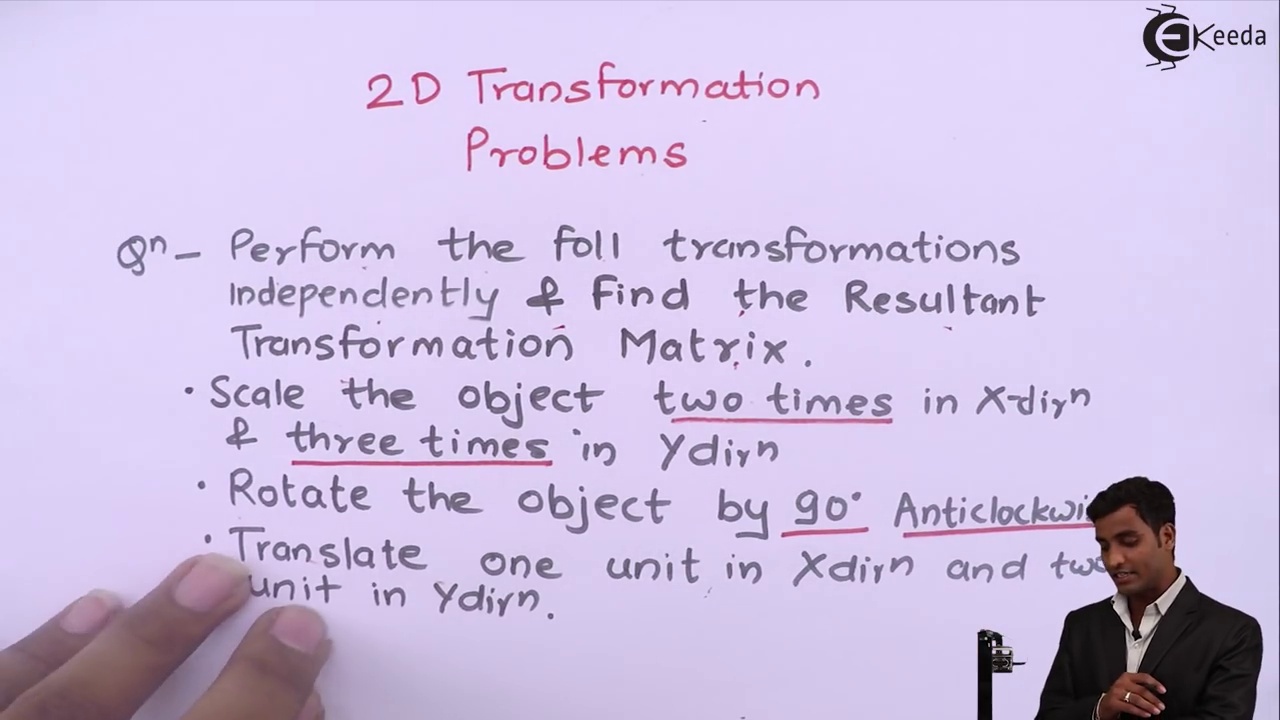 EKeeda
2D Transformation
Problems
Qn - Perform the foll transformations
independently & Find the Resultant
Transformation Matrix.
• Scale the object two times in X-dirn
& three times in Ydirn
• Rotate the object by 90° Anticlockwi
• Translate one unit in Xdirn and two
unit in Ydirn.